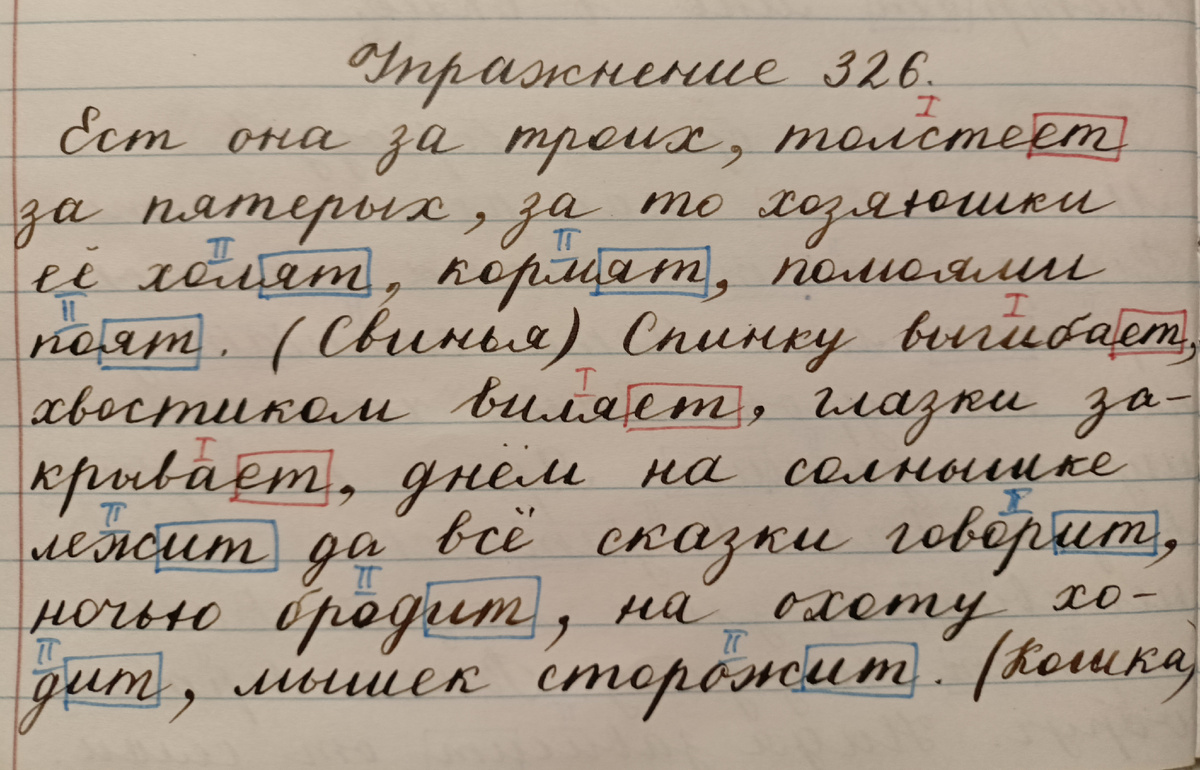 Упражнение 326.
Ест она за троих, толстеет
за пятерых, за то хозяюшки
её холят, кормят, помоями
поят. (Свинья) Спинку выгибает,
хвостиком виляет, глазки за-
крывает, днём на солнышке
лежит да всё сказки говорит,
ночью бродит, на охоту хо-
дит, мышек сторожит. (Кошка)